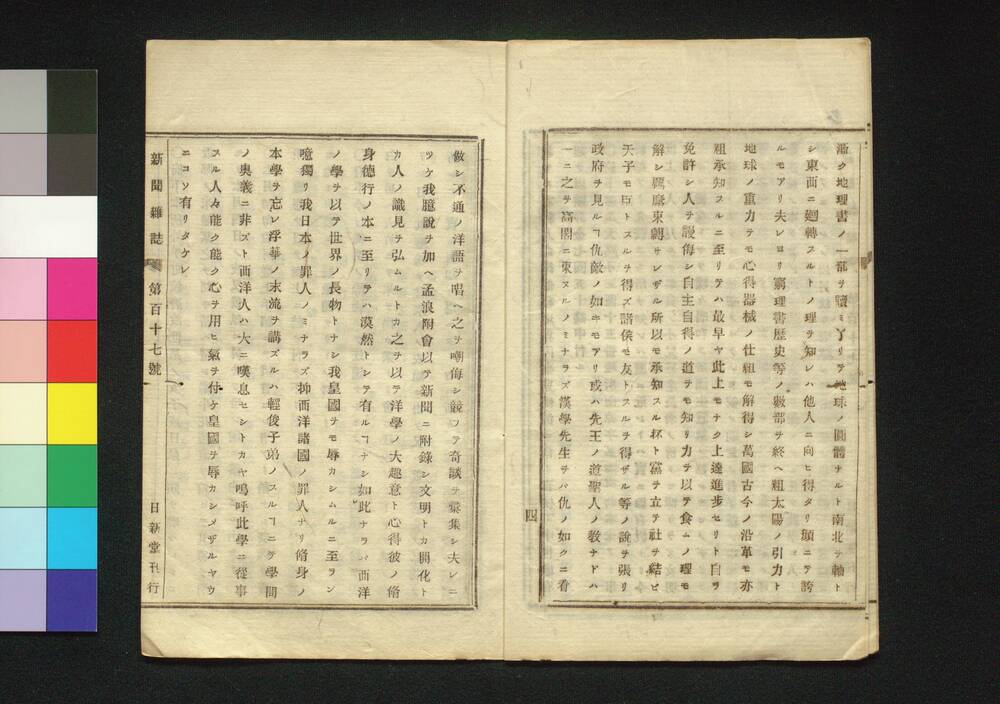 漸ク地理書ノ一部ヲ讀ミ了リテ地球ノ圓體ナルト南北ヲ軸ト
シ東西ニ廻轉スルトノ理ヲ知レハ他人ニ向ヒ得タリ顔ニテ誇
ルモアリ夫レヨリ窮理書歷史等ノ數部ヲ終ヘ粗太陽ノ引力ト
地球ノ重力テモ心得器械ノ仕組モ解得シ萬國古今ノ沿革モ亦
粗承知スルニ至リテハ最早ヤ此上モナク上達進步セリト自ラ
免許シ人ヲ謾侮シ自主自得ノ道ヲモ知リ力ヲ以テ食ムノ理モ
解シ羈縻束縛サレザル所以モ承知スル杯ト黨ヲ立テ社ヲ結ビ
天子モ臣トスルヲ得ズ諸侯モ友トスルヲ得ザル等ノ說ヲ張リ
政府ヲ見ルヿ仇敵ノ如キモアリ或ハ先王ノ道聖人ノ敎ナドハ
一ニ之ヲ高閣ニ束ヌルノミナラズ漢學先生ヲバ仇ノ如クニ看
四
倣シ不通ノ洋語ヲ唱ヘ之ヲ嘲侮シ競フテ奇談ヲ彙集シ夫レニ
ツケ我臆說ヲ加ヘ孟浪附會以テ新聞ニ附錄シ文明トカ開化ト
カ人ノ識見ヲ弘ムルトカ之ヲ以テ洋學ノ大趣意ト心得彼ノ脩
身德行ノ本ニ至リテハ漠然トシテ有ルヿナシ如此ナラバ西洋
ノ學ヲ以テ世界ノ長物トナシ我皇國ヲモ辱カシムルニ至ラン
噫獨リ我日本ノ罪人ノミナラズ抑西洋諸國ノ罪人ナリ脩身ノ
本學ヲ忘レ浮華ノ末流ヲ講ズルハ輕俊子弟ノスルヿニテ學問
ノ奥義ニ非ズト西洋人ハ大ニ嘆息セシトカヤ嗚呼此學ニ從事
スル人々能ク能ク心ヲ用ヒ氣ヲ付ケ皇國ヲ辱カシメザルヤウ
ニコソ有リタケレ
新聞雜誌 第百十七號 日新堂刊行